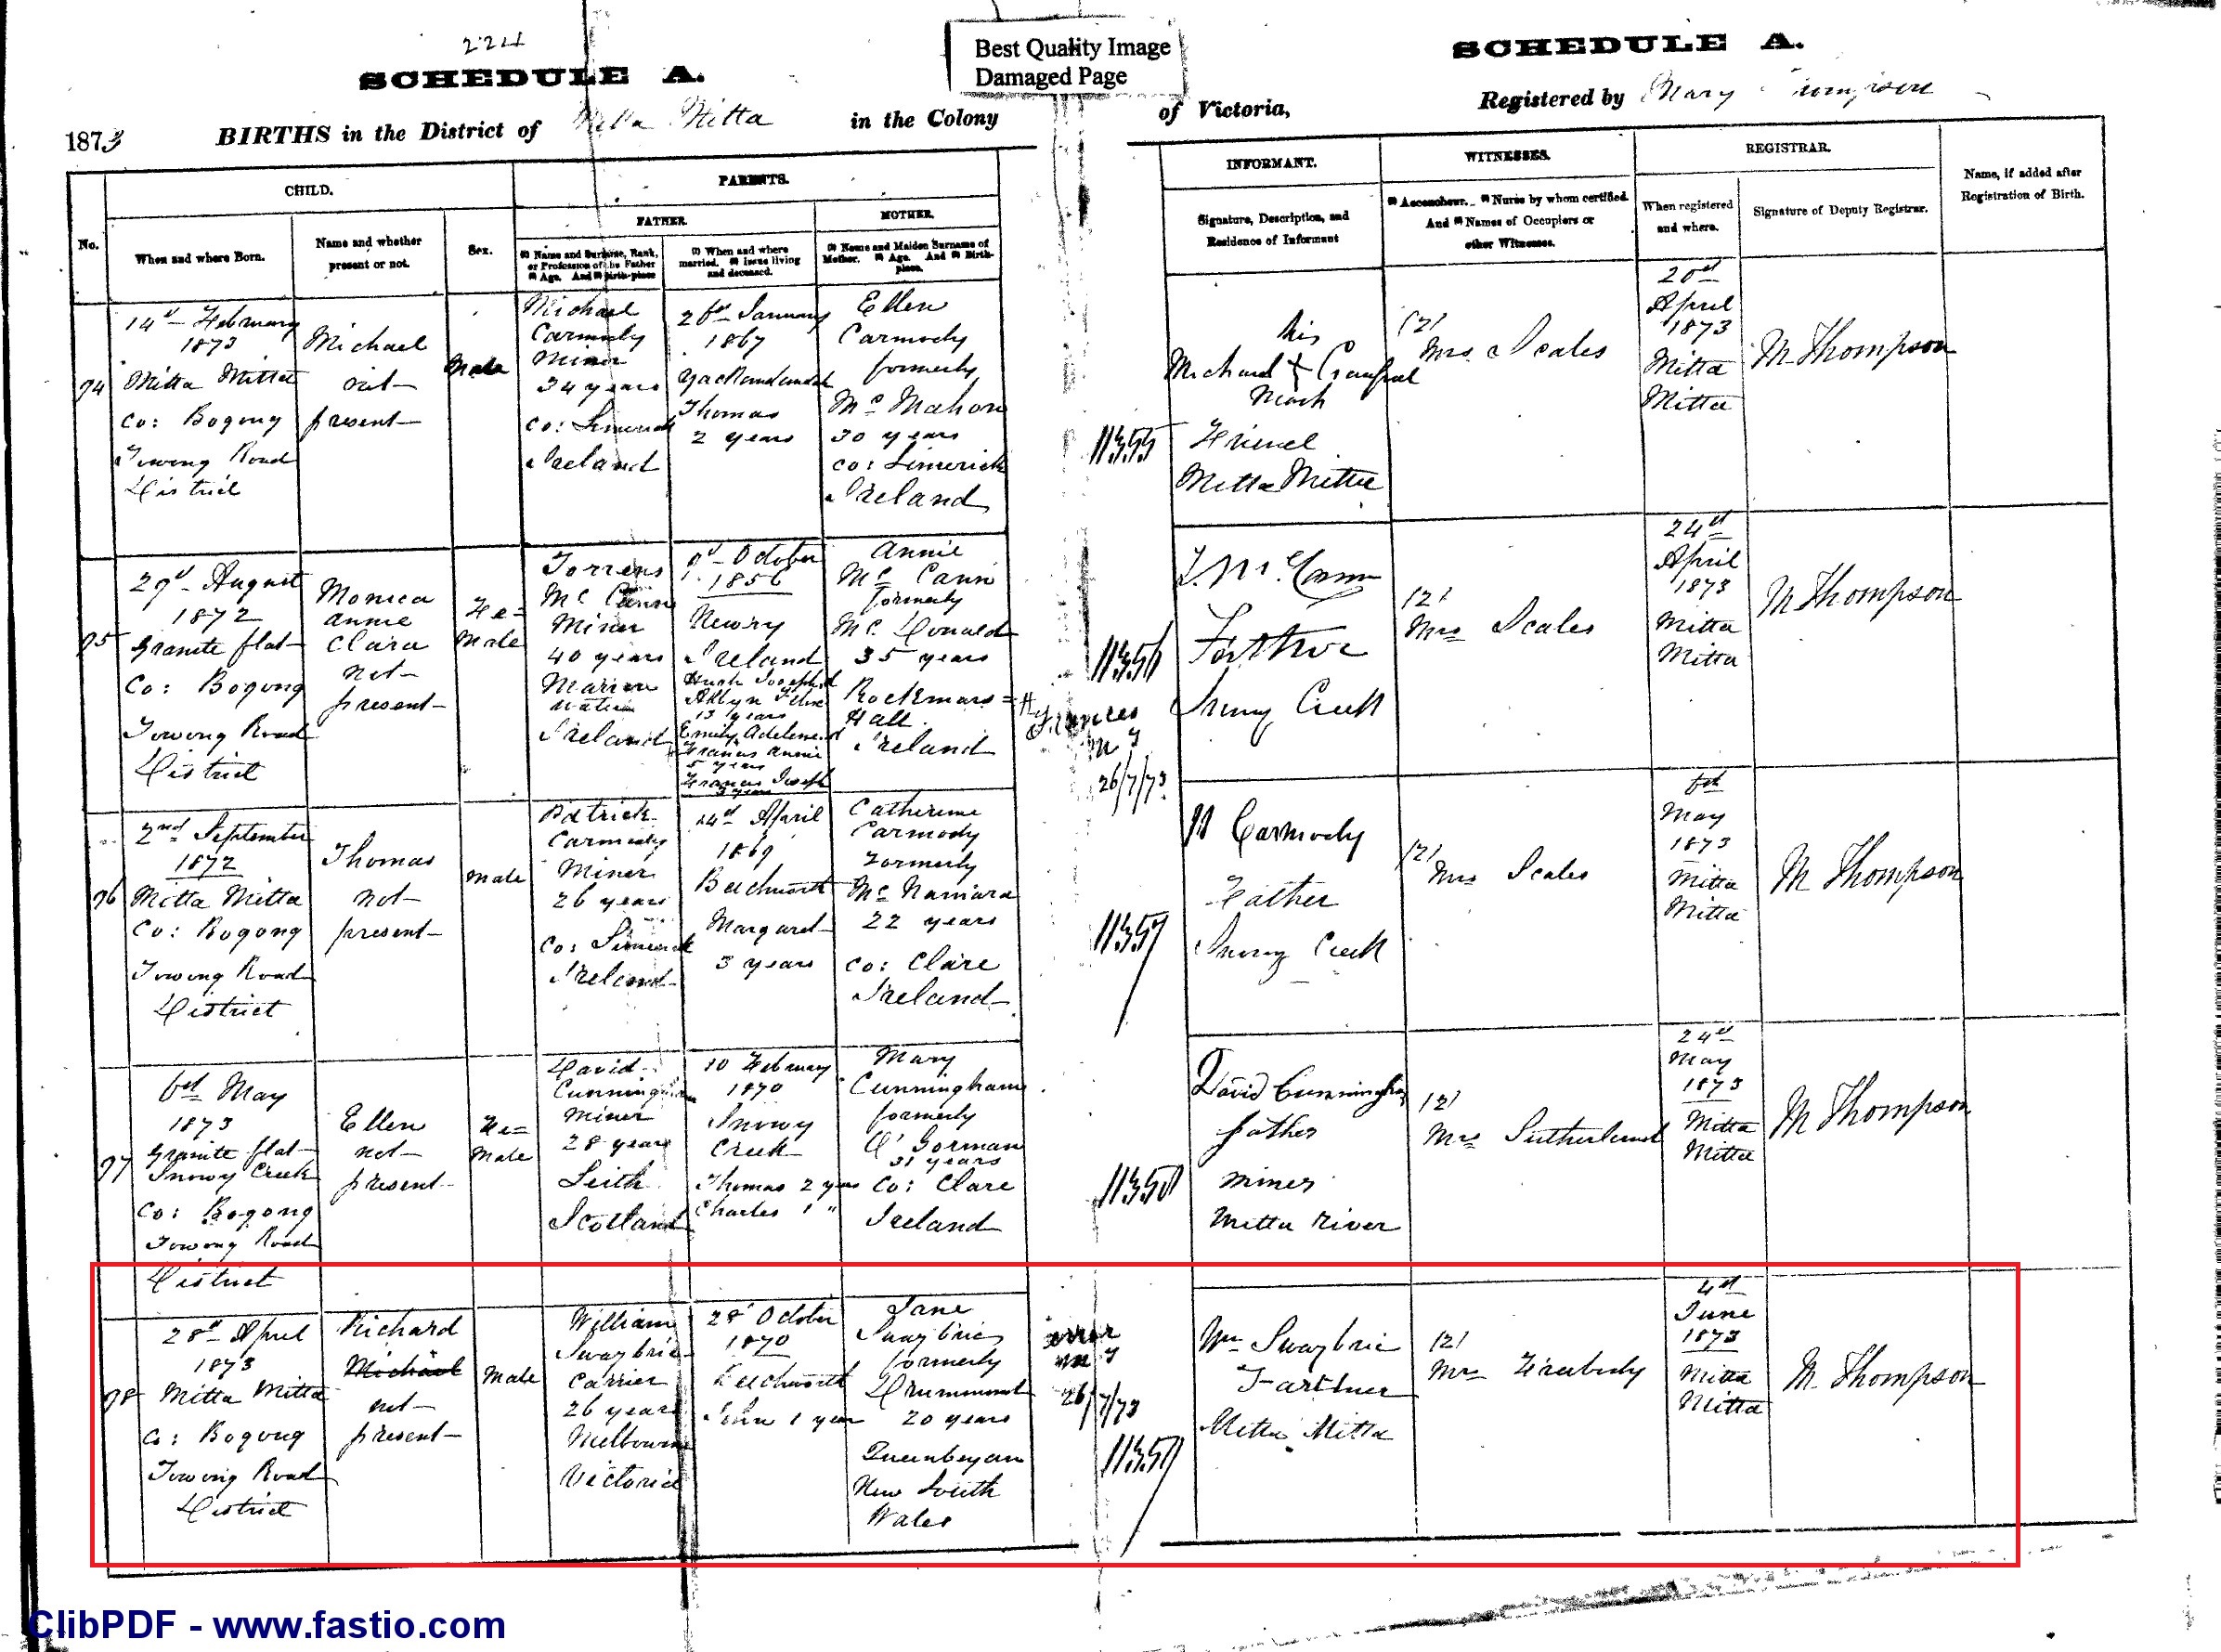 224
Best Quality Image
Damaged Page
SCHEDULE A.
SCHEDULE A.
1873 BIRTHS in the District of Mitta Mitta in the Colony of Victoria,
Registered by Mary Thompson
CHILD.
PARENTS.
INFORMANT.
WITNESSES.
REGISTRAR.
Name, if added after
Registration of Birth.
No.
When and where Born.
Name and whether
present or not.
Sex.
FATHER.
(1) Name and Surname, Rank,
or Profession of the Father
(2) Age. And (3) Birth-place
(1) When and where
married. (2) Issue living
and deceased.
MOTHER.
(1) Name and Maiden Surname of
Mother. (2) Age. And (3) Birth-
place.
Signature, Description, and
Residence of Informant
(1) Accoucheur. (2) Nurse by whom certified.
And (3) Names of Occupiers or
other Witnesses.
When registered
and where.
Signature of Deputy Registrar.
94
14th February
1873
Mitta Mitta
Co: Bogong
Towong Road
District
Michael
not
present
Male
Michael
Carmody
Miner
34 years
Co: Limerick
Ireland
26th January
1867
Yackandandah
Thomas
2 years
Ellen
Carmody
formerly
Mc Mahon
30 years
Co: Limerick
Ireland
11355
his
Michael X
Mark
Friend
Mitta Mitta
(2)
Mrs Scales
20th
April
1873
Mitta
Mitta
M Thompson
95
29th August
1872
Granite flat
Co: Bogong
Towong Road
District
Monica
Annie
Clara
not
present
Fe=
male
Torrens
Mc Cann
Miner
40 years
Ireland
9th October
1856
Newry
Ireland
Hugh Joseph
13 years
Emily Adeline
Francis Annie
5 years
Francis Joseph
3 years
Annie
Mc Cann
formerly
Mc Donald
35 years
Hall
Ireland
Frances
M T
26/7/73
11356
T. Mc Cann
Father
Snowy Creek
(2)
Mrs Scales
24th
April
1873
Mitta
Mitta
M Thompson
96
2nd September
1872
Mitta Mitta
Co: Bogong
Towong Road
District
Thomas
not
present
Male
Patrick
Carmody
Miner
26 years
Co: Limerick
Ireland
14th April
1869
Beechworth
Margaret
3 years
Catherine
Carmody
Formerly
Mc Namara
22 years
Co: Clare
Ireland
11357
P Carmody
Father
Snowy Creek
(2)
Mrs Scales
6th
May
1873
Mitta
Mitta
M Thompson
97
6th May
1873
Granite flat
Snowy Creek
Co: Bogong
Towong Road
District
Ellen
not
present
Fe=
male
David
Cunningham
Miner
28 years
Leith
Scotland
10 February
1870
Snowy
Creek
Thomas 2 years
Charles 1 "
Mary
Cunningham
formerly
O' Gorman
31 years
Co: Clare
Ireland
11358
David Cunningham
father
miner
Mitta River
(2)
Mrs Sutherland
24th
May
1873
Mitta
Mitta
M Thompson
98
28th April
1873
Mitta Mitta
Co: Bogong
Towong Road
District
Richard
Michael
not
present
Male
William
Swaybrie
Carrier
26 years
Melbourne
Victoria
28th October
1870
Beechworth
John 1 year
Jane
Swaybrie
formerly
Drummond
20 years
Queenbeyan
New South
Wales
error
M T
26/7/73
11359
Wm Swaybrie
Farther
Mitta Mitta
(2)
Mrs
4th
June
1873
Mitta
Mitta
M. Thompson
ClibPDF - www.fastio.com